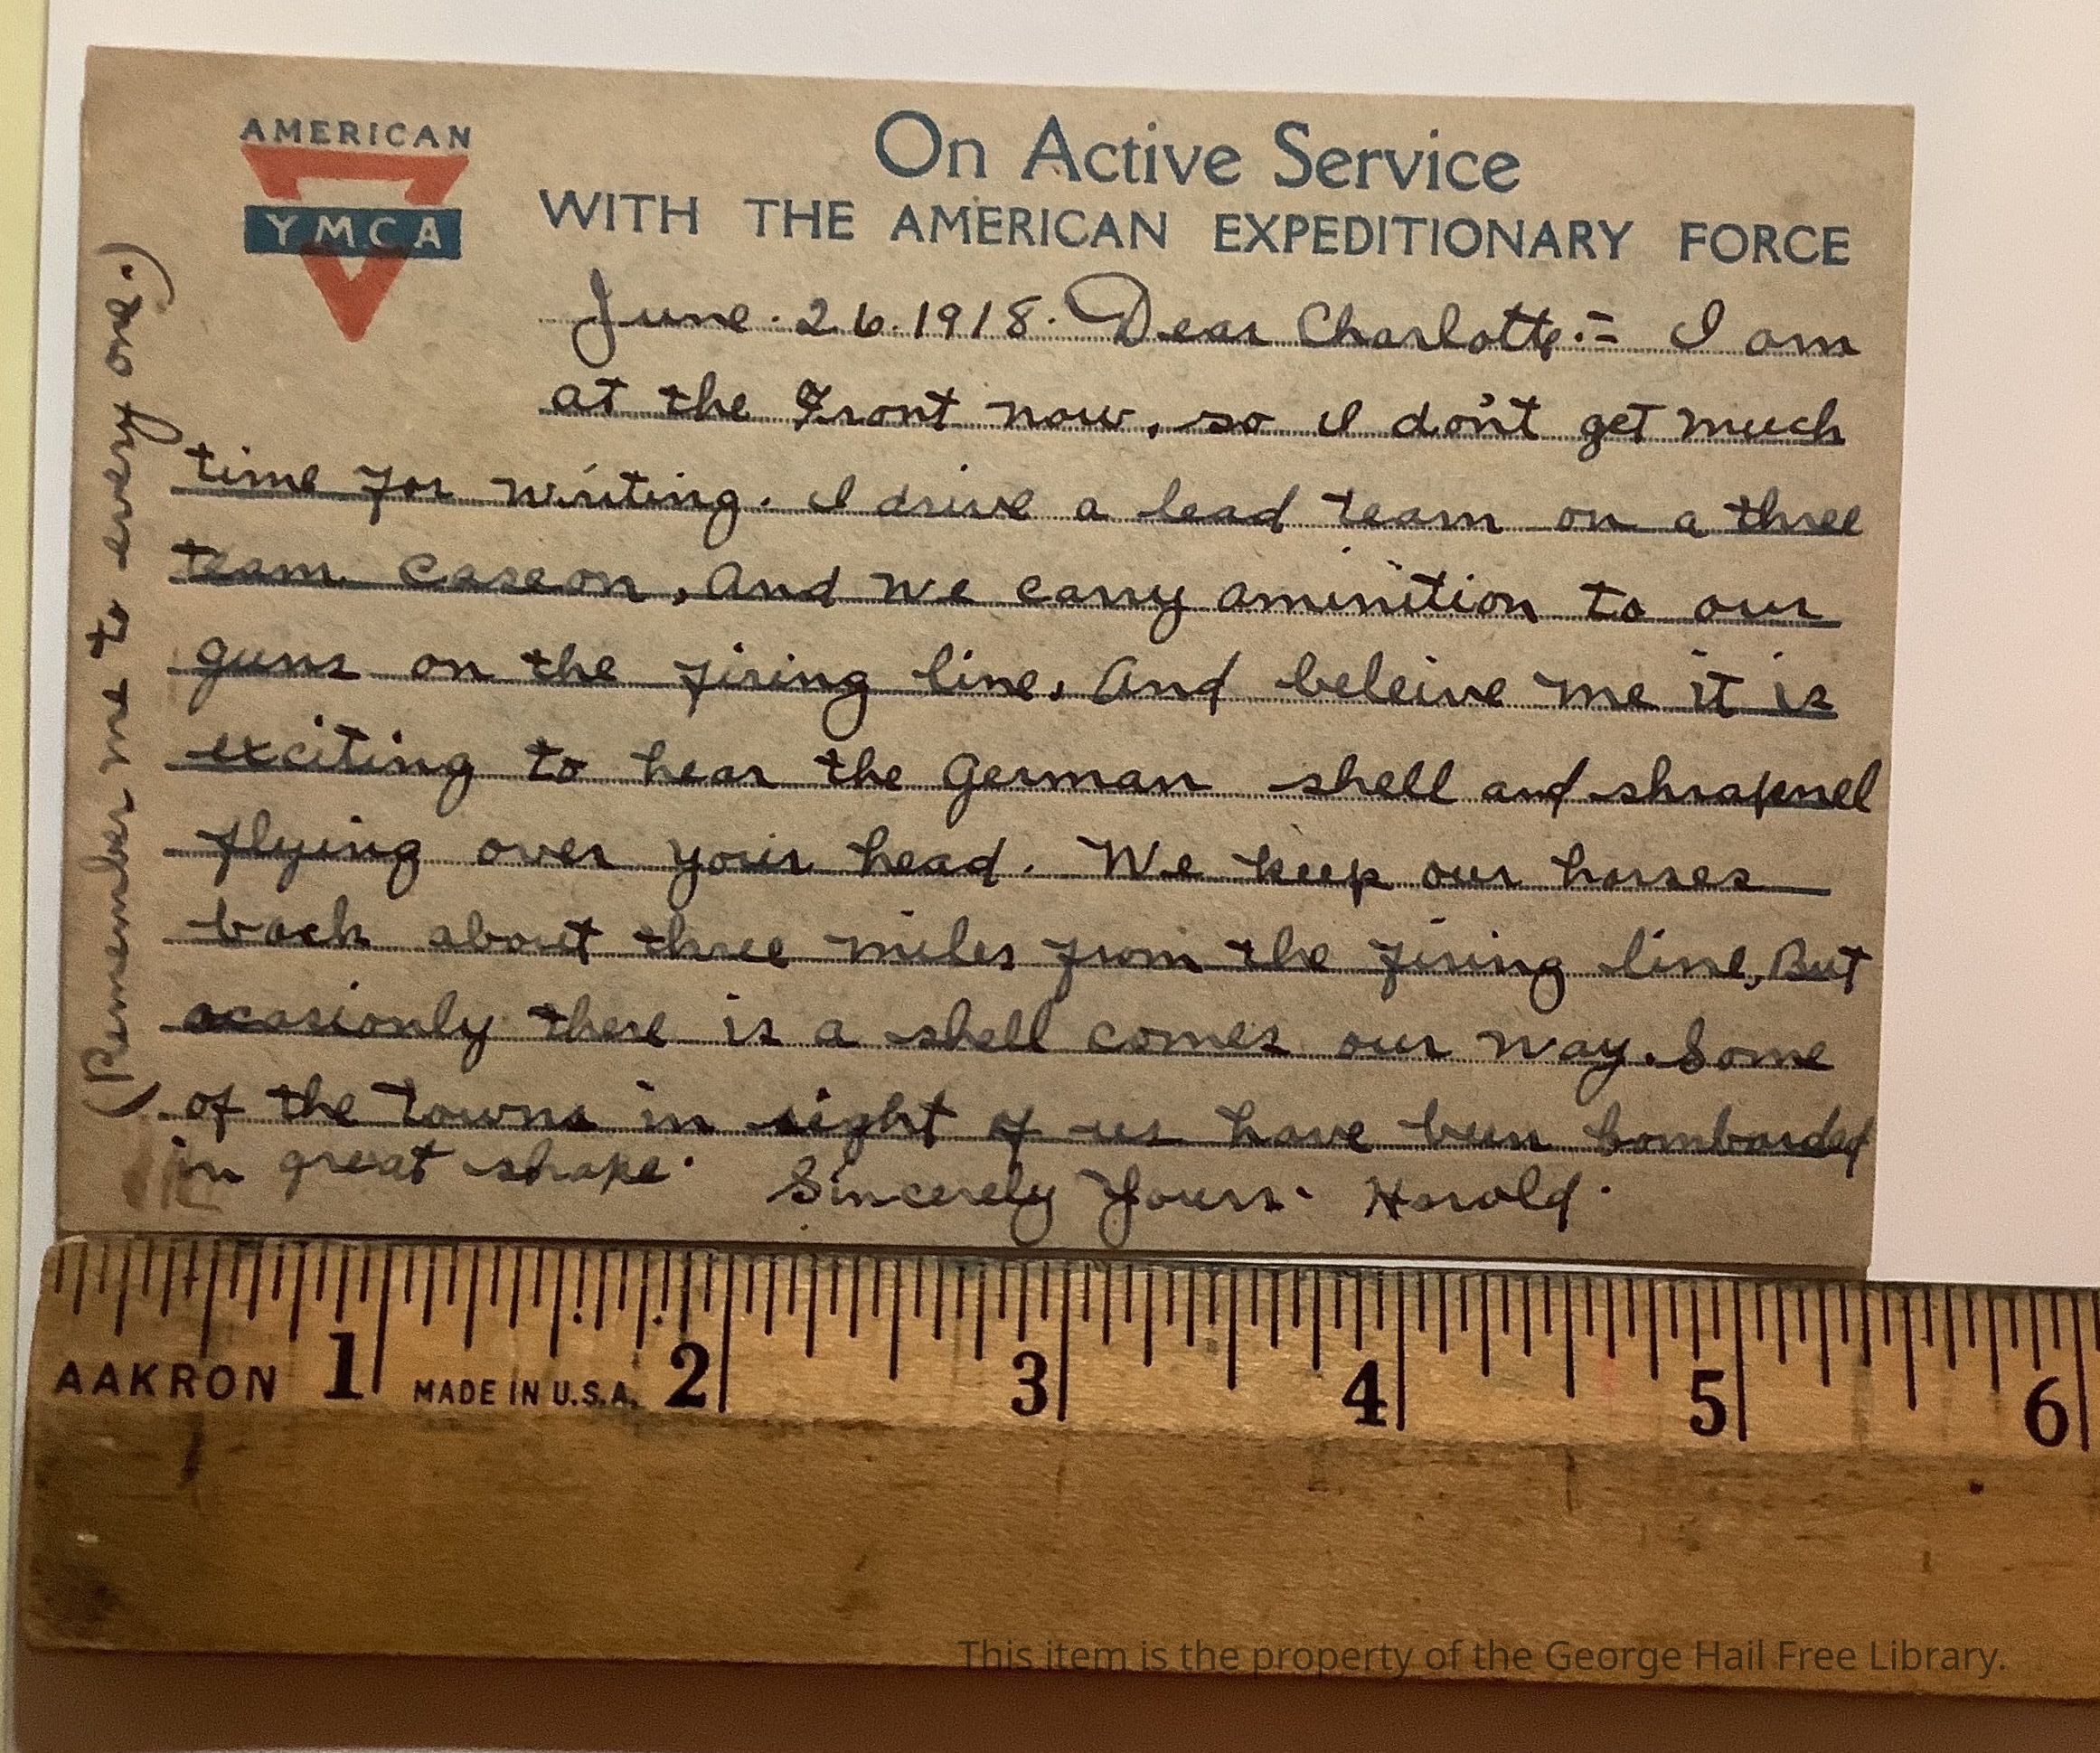 AMERICAN
YMCA
On Active Service
WITH THE AMERICAN EXPEDITIONARY FORCE
June. 26. 1918. Dear Charlotte:= I am
at the Front now, so I don't get much
time for writing. I drive a lead team on a three
team caseon, And we carry aminition to our
guns on the firing line, And beleive me it is
exciting to hear the German shell and shrapnel
flying over your head. We keep our horses
back about three miles from the firing line, But
ocasionly there is a shell comes our way. Some
of the towns in sight of us have been bombarded
in great shape. Sincerely Yours. Harold.
(Remember me to every one.)
AAKRON 1 MADE IN U.S.A. 2 3 4 5 6
This item is the property of the George Hail Free Library.